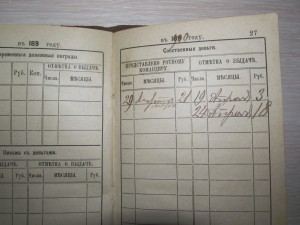 въ 189 году.
временныя денежныя награды.
Руб.
Коп.
ОТМѢТКА О ВЫДАЧѢ.
Числа.
МѢСЯЦЫ.
Письма съ деньгами.
Руб.
ОТМѢТКА О ВЫДАЧѢ.
Числа.
МѢСЯЦЫ.
въ 1890 году.
27
Собственныя деньги.
ПРЕДСТАВЛЕНО РОТНОМУ КОМАНДИРУ.
ОТМѢТКА О ВЫДАЧѢ.
Числа.
МѢСЯЦЫ.
Руб.
Числа.
МѢСЯЦЫ.
Руб.
29
21
10 Апрѣля 3
24 Апрѣля 18